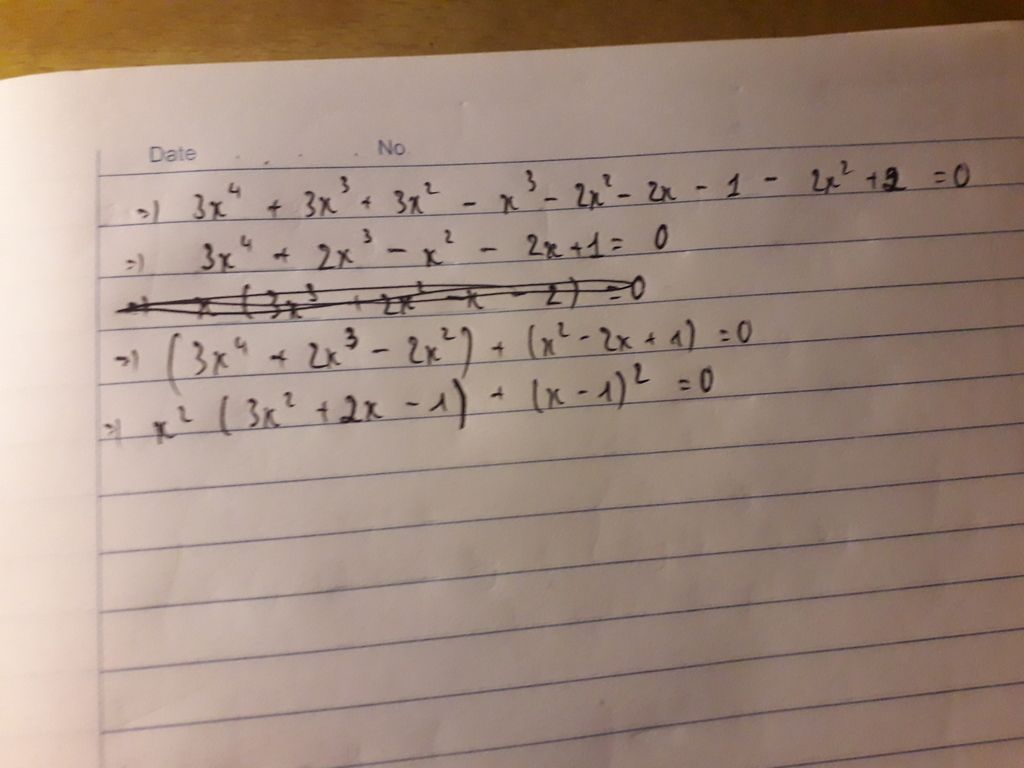 Date . . . . No
=) 3x⁴ + 3x³ + 3x² - x³ - 2x² - 2x - 1 - 2x² + 2 = 0
=) 3x⁴ + 2x³ - x² - 2x + 1 = 0
=) x (3x³ + 2x² - x - 2) = 0
=) (3x⁴ + 2x³ - 2x²) + (x² - 2x + 1) = 0
=) x² (3x² + 2x - 1) + (x - 1)² = 0